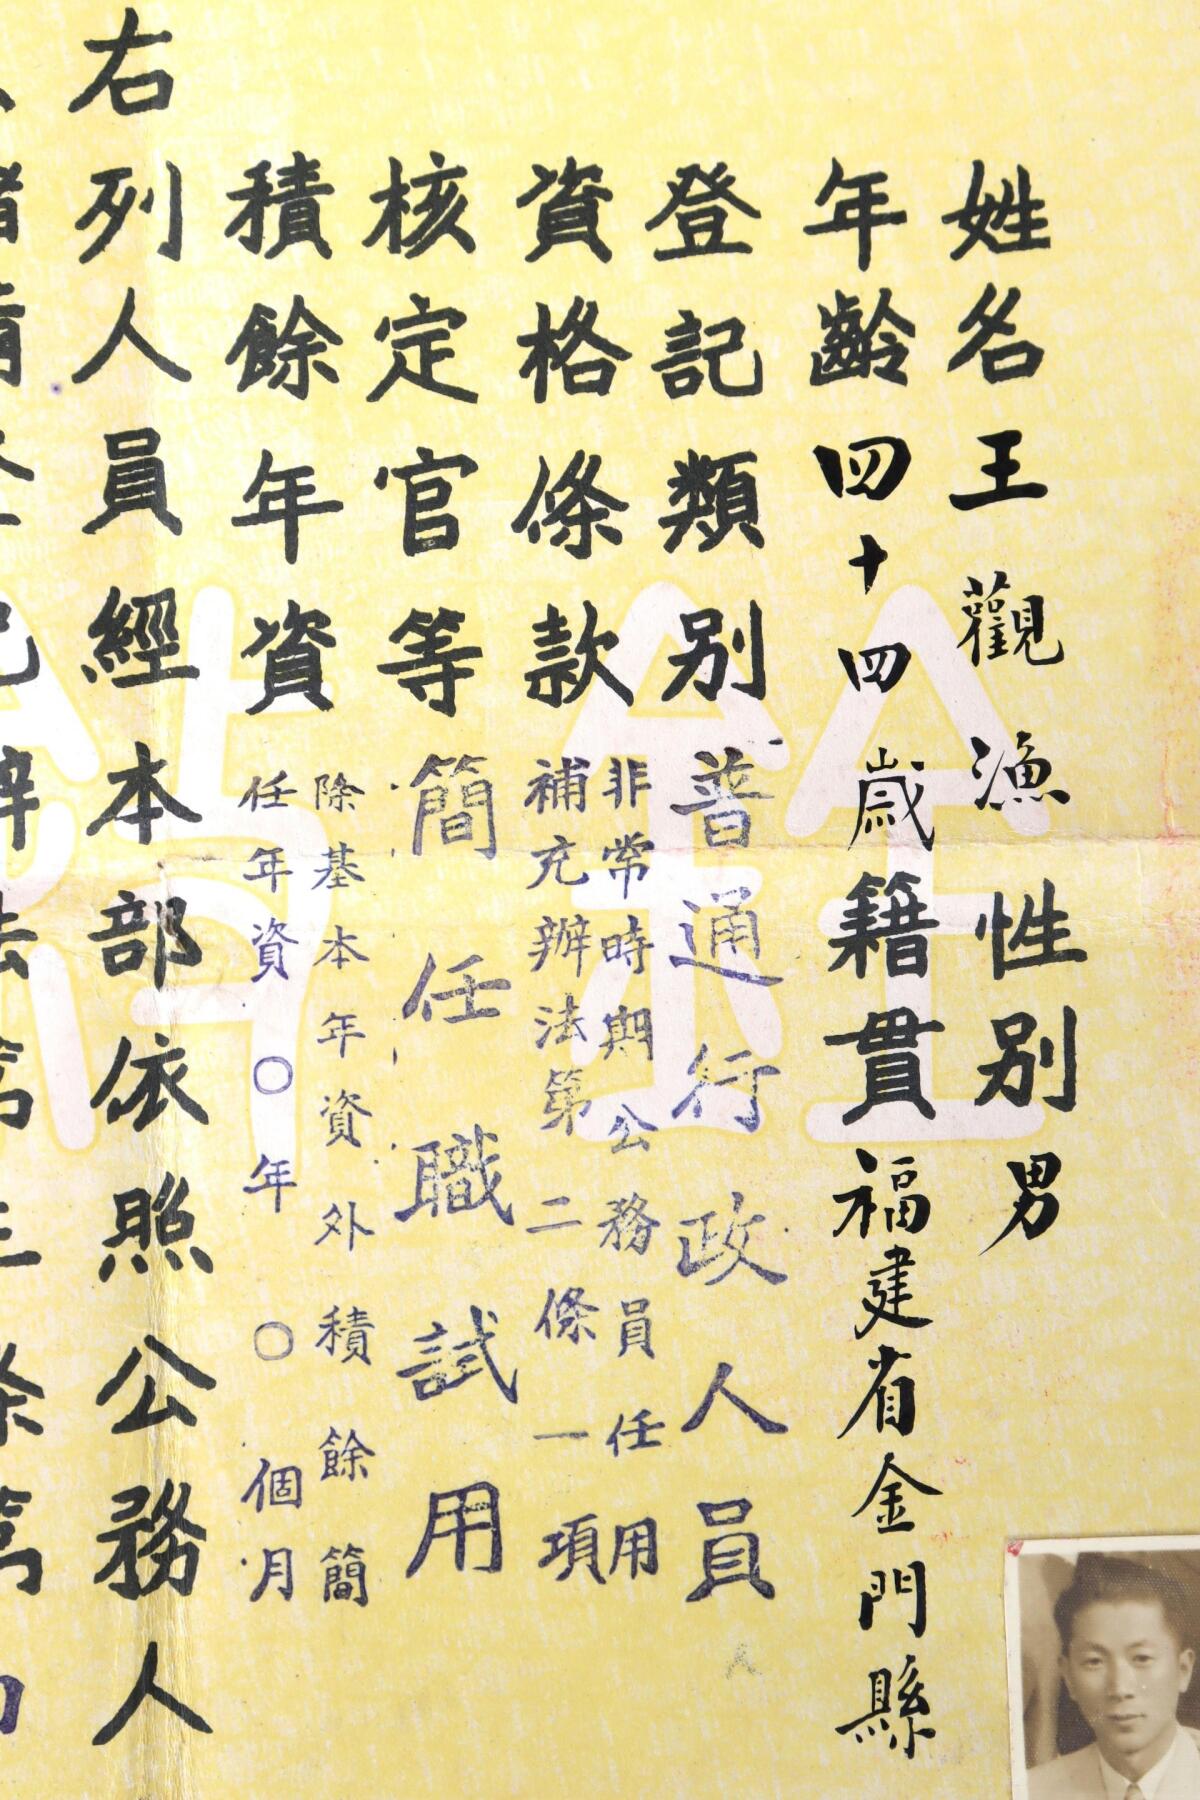 姓名王觀漁性別男
年齡四十四歲籍貫福建省金門縣
登記類別普通行政人員
資格條款非常時期公務員任用
補充辦法第二條一項
核定官等簡任職試用
積餘年資除基本年資外積餘簡
任年資〇年〇個月
右列人員經本部依照公務人